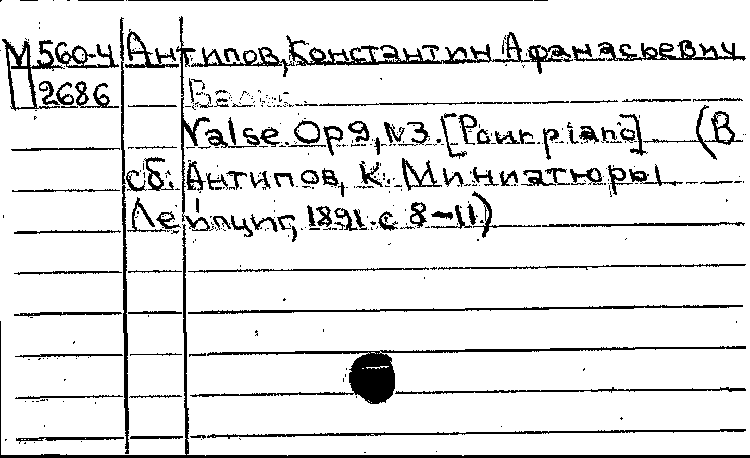 М 560-4 Антипов, Константин Афанасьевич
П 2686 Вальс.
Valse. Op 9, №3. [Pour piano] (В
сб: Антипов, К. Миниатюры.
Лейпциг, 1891. с 8-11)